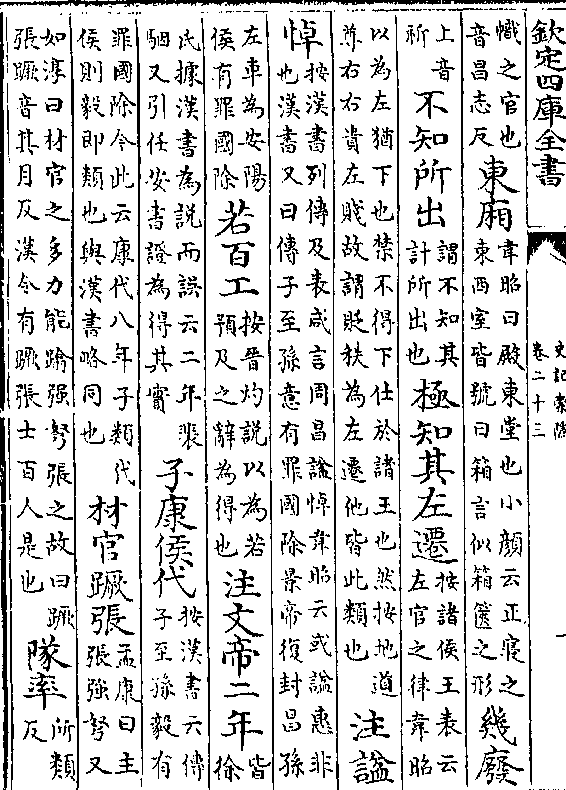 欽定四庫全書
史記索隱
卷二十三
幟之官也音昌志反東廂韋昭曰殿東堂也小顔云正寢之東西室皆號曰箱言似箱篋之形幾廢
上音祈不知所出謂不知其計所出也極知其左遷按諸侯王表云左官之律韋昭
以為左猶下也禁不得下仕於諸王也然按地道尊右右貴左賤故謂貶秩為左遷他皆此類也注謚
悼按漢書列傳及表咸言周昌謚悼韋昭云或謚惠非也漢書又曰傳子至孫意有罪國除景帝復封昌孫
左車為安陽侯有罪國除若百工按晉灼說以為若預及之辭為得也注文帝二年皆徐
氏據漢書為說而誤云二年裴駰又引任安書證為得其實子康侯代按漢書云傳子至孫毅有
罪國除今此云康代八年子類代侯則毅即類也與漢書略同也材官蹶張孟康曰主張強弩又
如淳曰材官之多力能踏强弩張之故曰蹶張蹶音其月反漢令有蹶張士百人是也隊率所類反